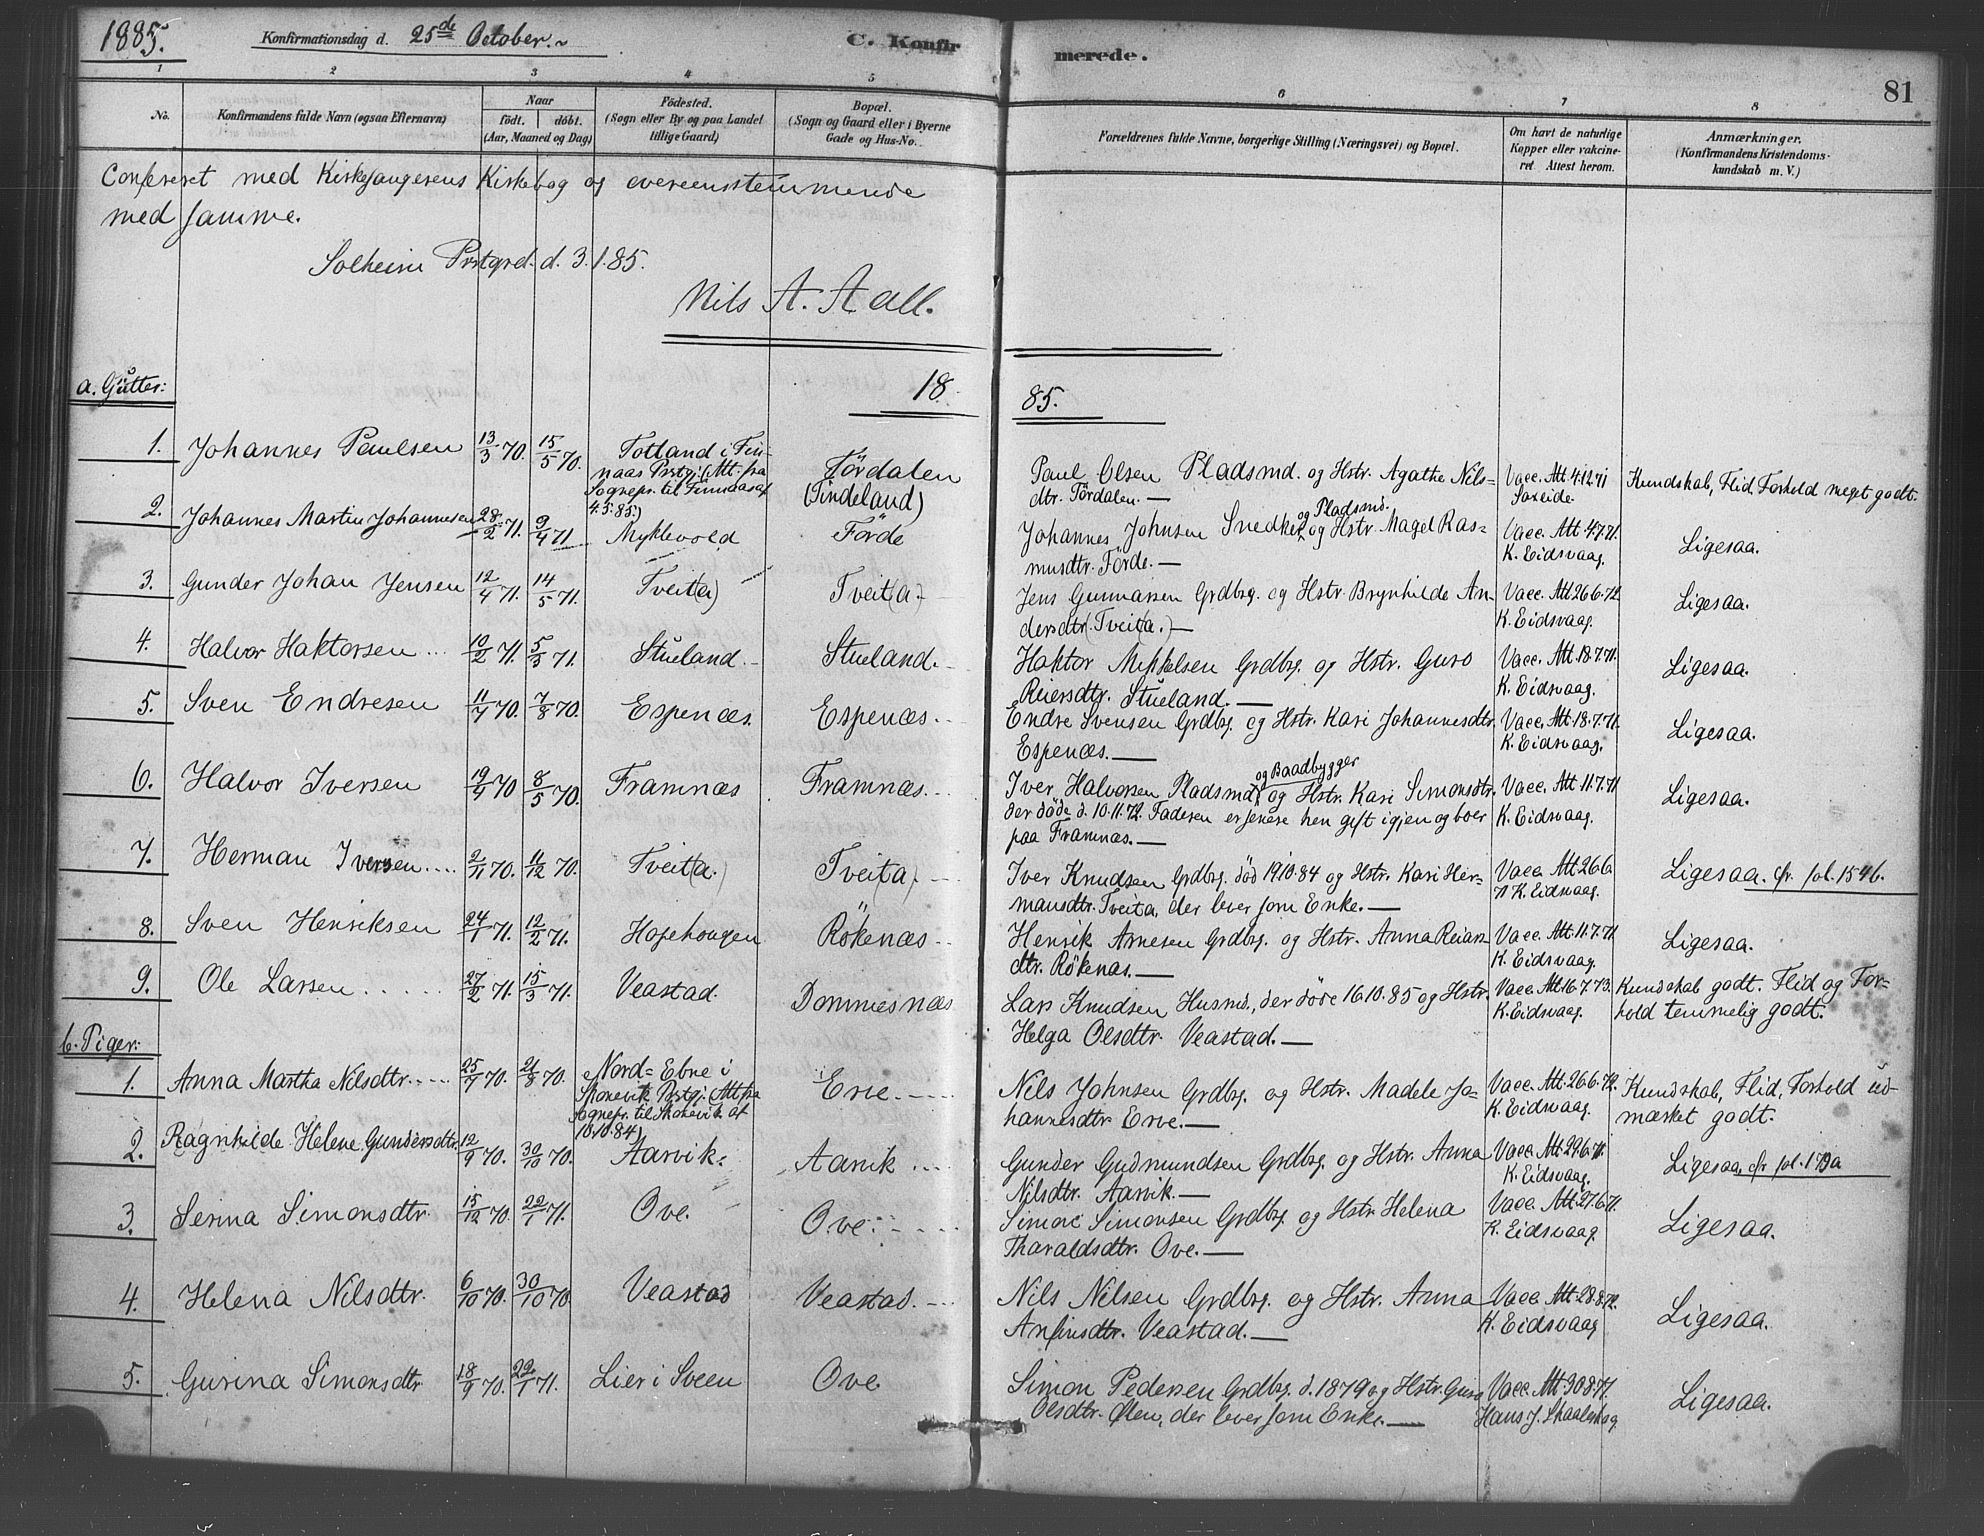 1885. Konfirmationsdag d. 25de October.
C. Konfirmerede.
81
1 2 3 4 5 6 7 8
No. Konfirmandens fulde Navn (ogsaa Efternavn) Naar født. døbt. (Aar, Maaned og Dag) Fødested. (Sogn eller By og paa Landet tillige Gaard) Bopæl. (Sogn og Gaard eller i Byerne Gade og Hus-No. Forældrenes fulde Navne, borgerlige Stilling (Næringsvei) og Bopæl. Om havt de naturlige Kopper eller vakcineret Attest herom. Anmærkninger. (Konfirmandens Kristendomskundskab m. V.)
Confereret med Kirkesangerens Kirkebog og overeensstemmende
med samme.
Solheim Prstgrd. d. 3.1.85.
Nils A. Aall.
a. Gutter:
1885.
1. Johannes Paulsen 13/3 70. 15/5 70. Totland i Finnaas Prstgj. (Att. fra Sognepr. til Finnaas af 4.5.85.) Tördalen (Tindeland) Paul Olsen Pladsmd. og Hstr. Agathe Nilsdtr. Tördalen. — Vacc. Att 4.12.71 Kundskab, Flid, Forhold meget godt.
2. Johannes Martin Johannesen 28/2 71. 9/4 71. Myklevold Förde Johannes Johnsen Snedker og Pladsmd. og Hstr. Magel Rasmusdtr. Förde. — Vacc. Att 4.7.71. K. Eidsvaag. Ligesaa.
3. Gunder Johan Jensen 12/4 71. 14/5 71. Tveit(a) Tveit(a.) Jens Gunnarsen Grdbrg. og Hstr. Brynhilde Andersdtr. Tveit(a.) — Vacc. Att 26.6.72 K. Eidsvaag. Ligesaa.
4. Halvor Haktorsen 10/2 71. 5/3 71. Stueland. Stueland. Haktor Mikkelsen Grdbrg. og Hstr. Guro Reiersdtr. Stueland. — Vacc. Att. 18.7.71. K. Eidsvaag. Ligesaa.
5. Sven Endresen 11/7 70. 7/8 70. Espenæs. Espenæs. Endre Svensen Grdbrg. og Hstr. Kari Johannesdtr. Espenæs. — Vacc. Att. 18.7.71. K. Eidsvaag. Ligesaa.
6. Halvor Iversen 19/4 70 8/5 70. Framnæs Framnæs. Iver Halvorsen Pladsmd. og Baadbygger og Hstr. Kari Simonsdtr. der döde d. 10.11.72. Faderen er senere hen gift igjen og boer paa Framnæs. — Vacc. Att 11.7.71 K. Eidsvaag. Ligesaa.
7. Herman Iversen 2/11 70. 11/12 70. Tveit(a.) Tveit(a). Iver Knudsen Grdbrg. död 19.10.84 og Hstr. Kari Hermansdtr. Tveita, der lever som Enke. — Vacc. Att 26.6. K. Eidsvaag. Ligesaa. cfr. fol. 154b.
8. Sven Henriksen 24/1 71. 12/2 71. Hopehougen Rökenæs. Henrik Arnesen Grdbrg. og Hstr. Anna Reiarsdtr. Rökenæs. — Vacc. Att. 11.7.71. K. Eidsvaag. Ligesaa.
9. Ole Larsen 27/2 71. 15/3 71. Veastad. Dommesnæs Lars Knudsen Husmd., der döde 16.10.85 og Hstr. Helga Olesdtr. Veastad. — Vacc. Att 16.7.73. K. Eidsvaag. Kundskab godt. Flid og Forhold temmelig godt.
b. Piger:
1. Anna Martha Nilsdtr. 25/7 70. 21/8 70. Nord-Ebne i Skonevik Prstgj. (Att fra Sognepr. til Skonevik af 10.10.84) Erve. Nils Johnsen Grdbrg. og Hstr. Madele Johannesdtr. Erve. — Vacc. Att. 26.6.72. K. Eidsvaag. Kundskab, Flid, Forhold udmærket godt.
2. Ragnhilde Helene Gundersdtr. 12/9 70. 30/10 70. Aarvik. Aarvik Gunder Gudmundsen Grdbrg. og Hstr. Anna Nilsdtr. Aarvik. — Vacc. Att 29.6.71. K. Eidsvaag. Ligesaa. cfr fol. 179a
3. Serina Simonsdtr. 15/12 70. 22/1 71. Ove. Ove. Simon Simonsen Grdbrg. og Hstr. Helena Tharaldsdtr. Ove. — Vacc. Att. 27.6.71. K. Eidsvaag. Ligesaa.
4. Helena Nilsdtr. 6/10 70. 30/10 70. Veastad Veastad. Nils Nilsen Grdbrg. og Hstr. Anna Anfinsdtr. Veastad. — Vacc. Att. 28.8.72. K. Eidsvaag Ligesaa.
5. Gurina Simonsdtr. 18/9 70. 22/1 71. Lier i Sveen Ove Simon Pedersen Grdbrg. d. 1879 og Hstr. Guro Olsdtr. Ølen, der lever som Enke. — Vacc. Att. 30.8.71. Hans J. Ligesaa.